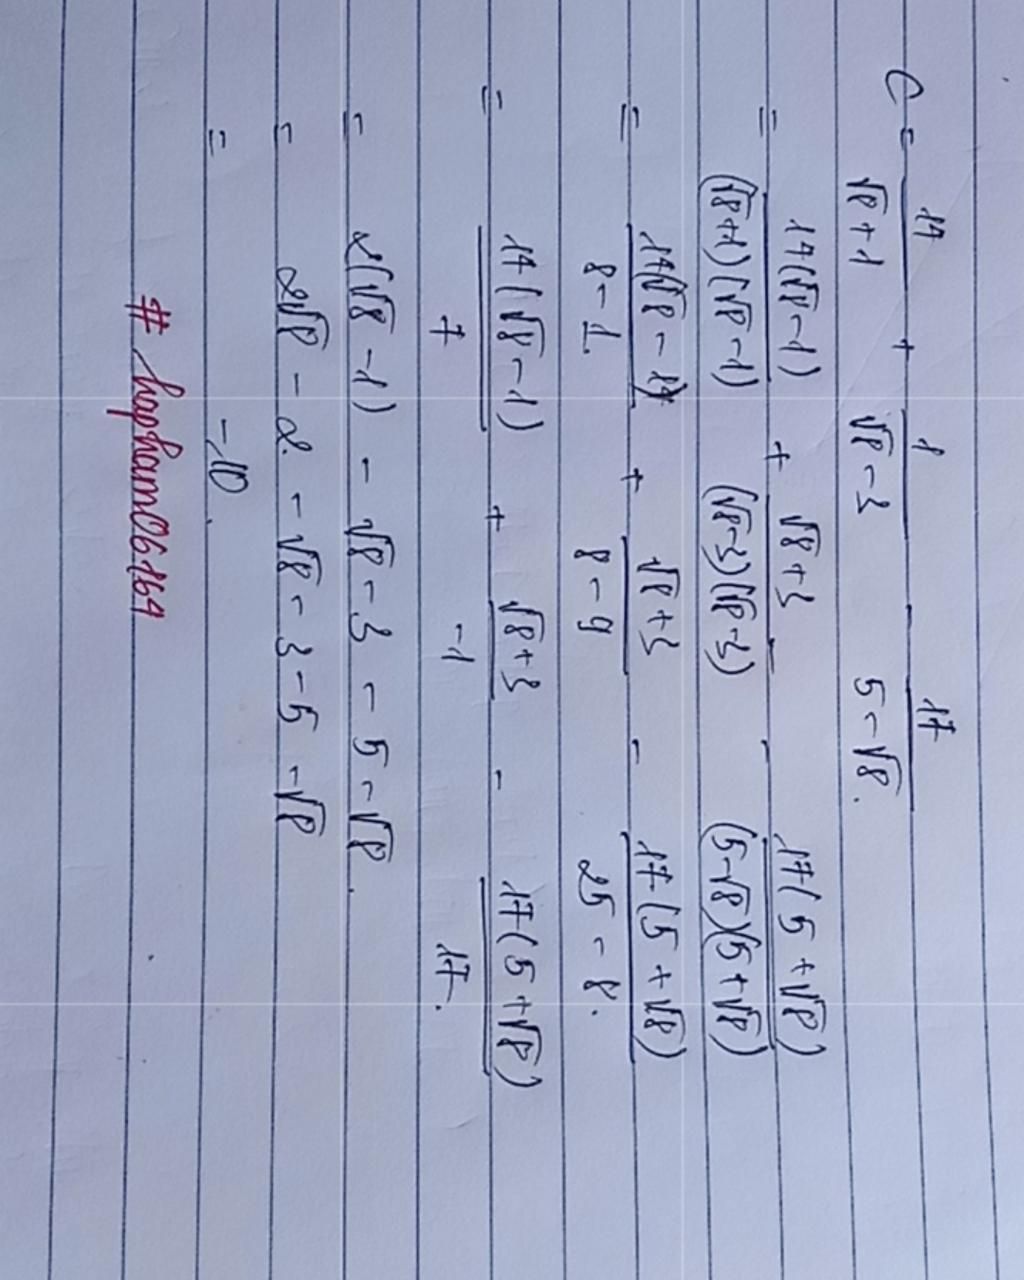 C = 14/(√8+1) + 1/(√8-3) - 17/(5-√8).
= 14(√8-1)/((√8+1)(√8-1)) + (√8+3)/((√8-3)(√8-3)) - 17(5+√8)/((5-√8)(5+√8))
= 14(√8-1)/(8-1) + (√8+3)/(8-9) - 17(5+√8)/(25-8).
= 14(√8-1)/7 + (√8+3)/-1 - 17(5+√8)/17.
= 2(√8-1) - √8-3 - 5-√8.
= 2√8 - 2 - √8 - 3 - 5 - √8
= -10.
# hapham06764